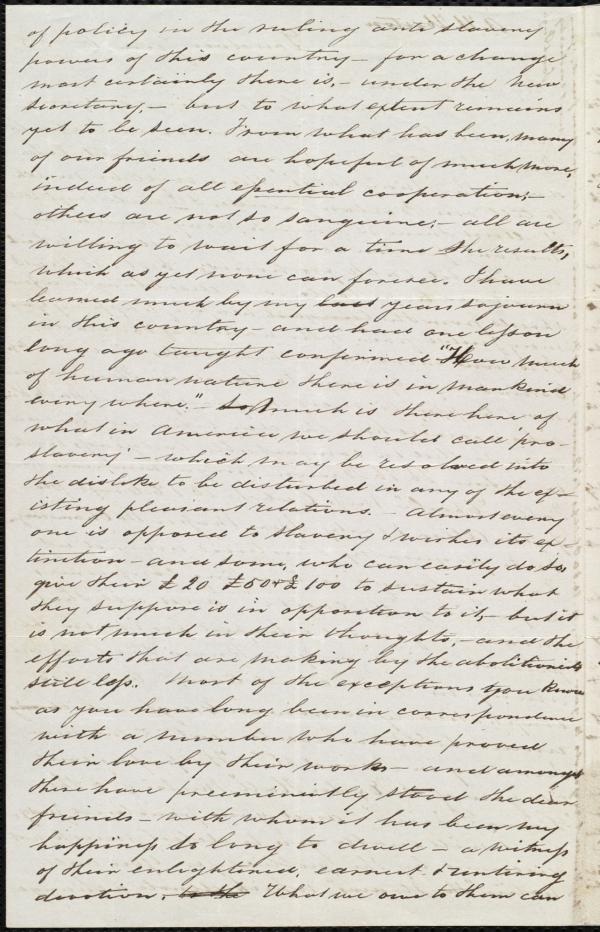 of policy in the ruling anti slavery
powers of this country – for a change
most certainly there is, – under the New
Secretary, – but to what extent remains
yet to be seen. From what has been, many
of our friends are hopeful of much more,
indeed of all essential cooperation; –
others are not so sanguine; – all are
willing to wait for a time the results,
which as yet none can foresee. I have
learned much by my last years sojourn
in this country – and had one lesson
long ago taught confirmed "How much
of human nature there is in mankind
every where." – So much is there here of
what in America we should call 'pro-
slavery' – which may be resolved into
the dislike to be disturbed in any of the ex-
isting pleasant relations. – Almost every
one is opposed to slavery & wishes its ex-
tinction – and some, who can easily do so,
give their £20 £50 & £100 to sustain what
they suppose is in opposition to it, – but it
is not much in their thoughts, – and the
efforts that are making by the abolitionists
still less. Most of the exceptions you know
as you have long been in correspondence
with a number who have proved
their love by their works – and amongst
these have preeminently stood the dear
friends – with whom it has been my
happiness so long to dwell – a witness
of their enlightened, earnest & untiring
devotion. to the What we owe to them can